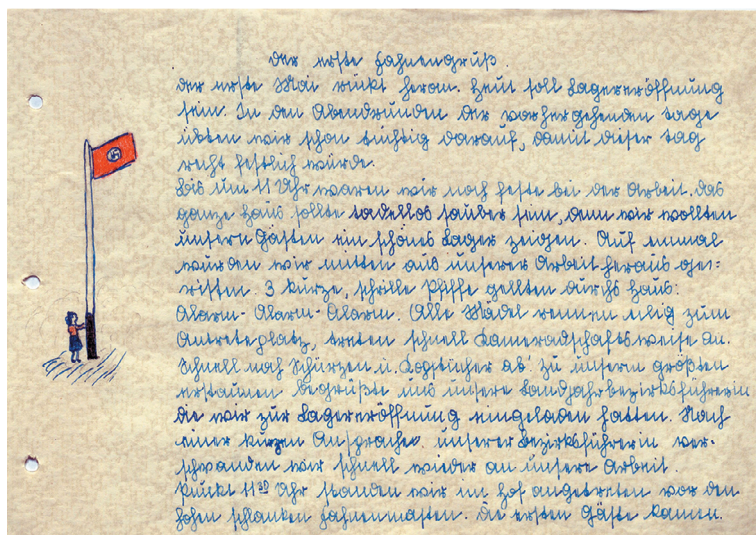 Der erste Fahnengruß.
Der erste Mai rückt heran. Heut soll Lagereröffnung
sein. In den Abendstunden der vorhergehenden Tage
übten wir schon tüchtig darauf, damit dieser Tag
recht festlich würde.
Bis um 11 Uhr waren wir noch feste bei der Arbeit. Das
ganze Haus sollte tadellos sauber sein, denn wir wollten
unsern Gästen ein schönes Lager zeigen. Auf einmal
wurden wir mitten aus unserer Arbeit heraus ge-
rissen. 3 kurze, schrille Pfiffe gellten durchs Haus:
Alarm- Alarm- Alarm. Alle Mädel rennen eilig zum
Antreteplatz, treten schnell Kameradschaftsweise an.
Schnell noch Schürzen u. Kopftücher ab! Zu unserm größten
erstaunen begrüßte uns unsere Landjahrbezirksführerin
die wir zur Lagereröffnung eingeladen hatten. Nach
einer kurzen Ansprache unserer Bezirksführerin ver-
schwanden wir schnell wieder an unsere Arbeit.
Punkt 11³⁰ Uhr standen wir im Hof angetreten vor den
hohen schlanken Fahnenmasten. Die ersten Gäste kamen.